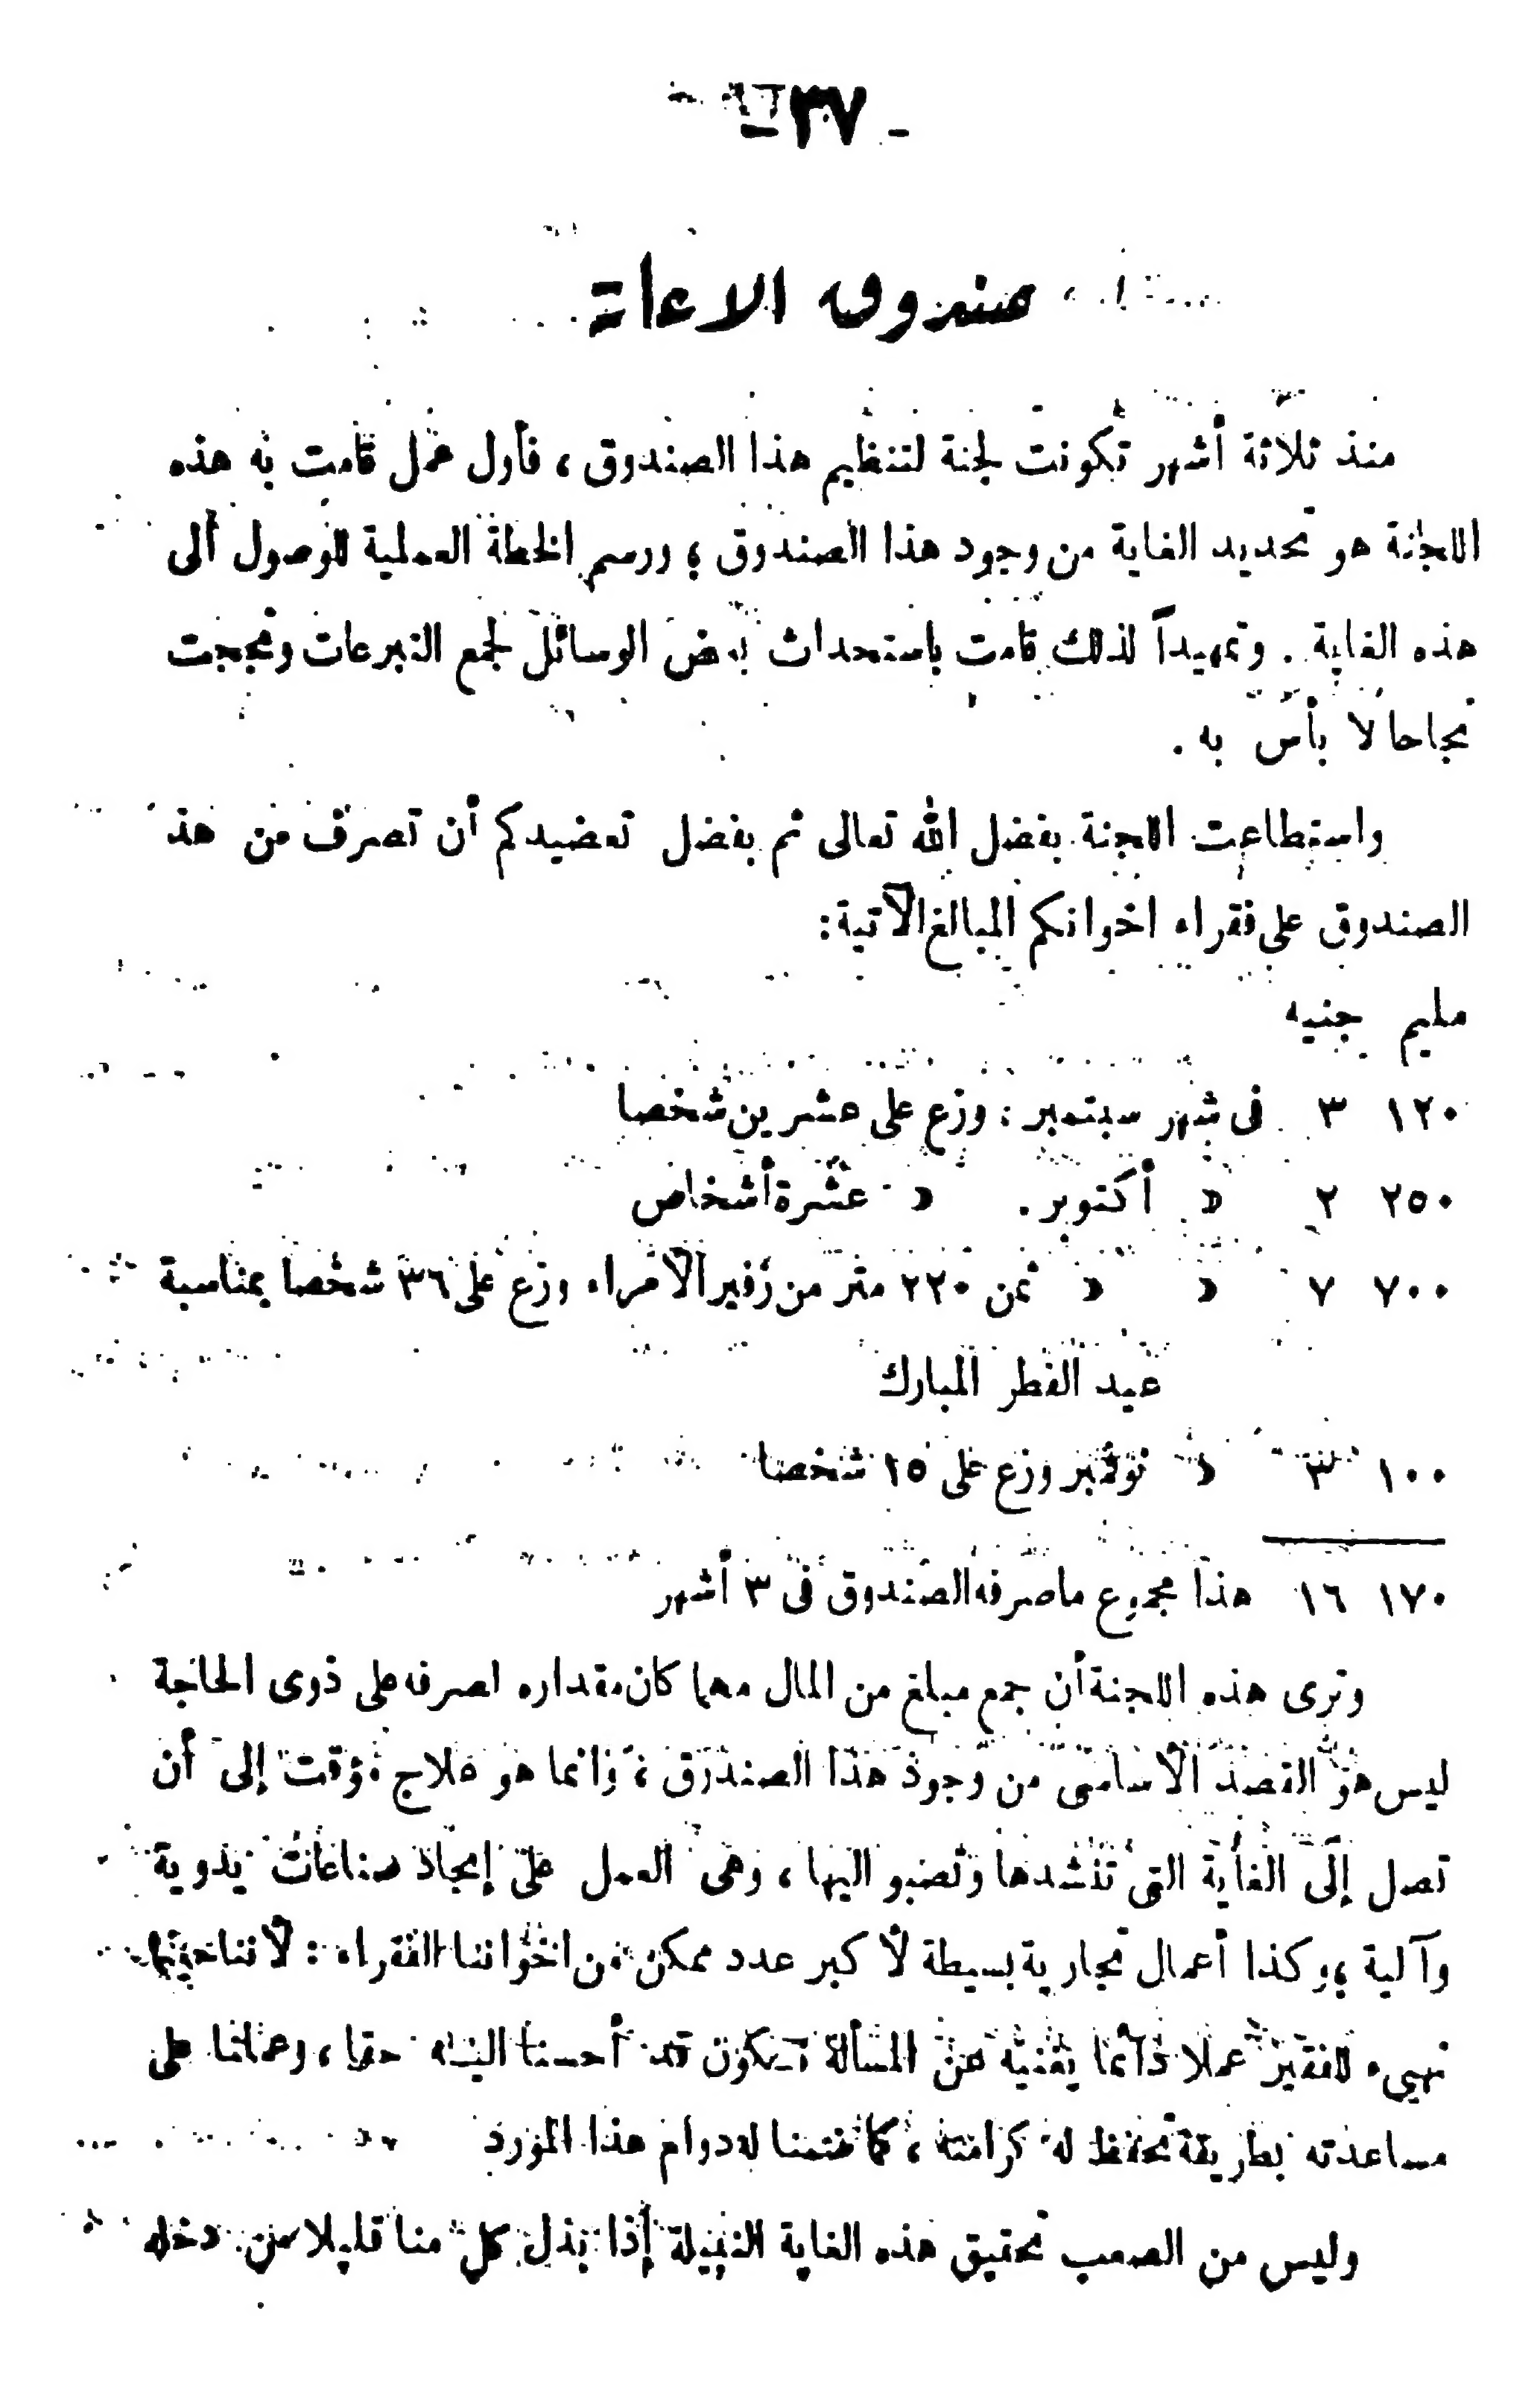 - ٣٧ -
صندوق الاعانة
منذ ثلاثة أشهر تكونت لجنة لتنظيم هذا الصندوق ، فأول عمل قامت به هذه
اللجنة هو تحديد الغاية من وجود هذا الصندوق ، ورسم الخطة العملية للوصول ألى
هذه الغاية . وتمهيداً لذلك قامت باستحداث بعض الوسائل لجمع التبرعات ونجحت
نجاحا لا بأس به .
واستطاعت اللجنة بفضل الله تعالى ثم بفضل تعضيدكم أن تصرف من هذ
الصندوق على فقراء اخوانكم المبالغ الآتية :
مليم جنيه
١٢٠ ٣ فى شهر سبتمبر : وزع على عشرين شخصا
٢٥٠ ٢ « أكتوبر . « عشرة أشخاص
٧٠٠ ٧ « « ثمن ٢٢٠ متر من زفير الأمراء وزع على ٣٦ شخصا بمناسبة
عيد الفطر المبارك
١٠٠ ٣ « نوفمبر وزع على ١٥ شخصا
١٧٠ ١٦ هذا مجموع ما صرفه الصندوق فى ٣ أشهر
وترى هذه اللجنة أن جمع مبلغ من المال مهما كان مقداره لصرفه على ذوى الحاجة
ليس هو القصد الأساسى من وجود هذا الصندوق ، وانما هو علاج مؤقت إلى أن
تصل إلى الغاية التى تنشدها وتصبو اليها ، وهى العمل على إيجاد صناعات يدوية
وآلية ، وكذا أعمال تجارية بسيطة لأكبر عدد ممكن من اخواننا الفقراء : لأننا حينما
نهيىء للفقير عملا دائما يغنيه عن المسألة نكون قد أحسنا اليه حقا ، وعملنا على
مساعدته بطريقة تحفظ له كرامته ، كما ضمنا له دوام هذا المورد
وليس من الصعب تحقيق هذه الغاية النبيلة إذا بذل كل منا قليلا من دخله